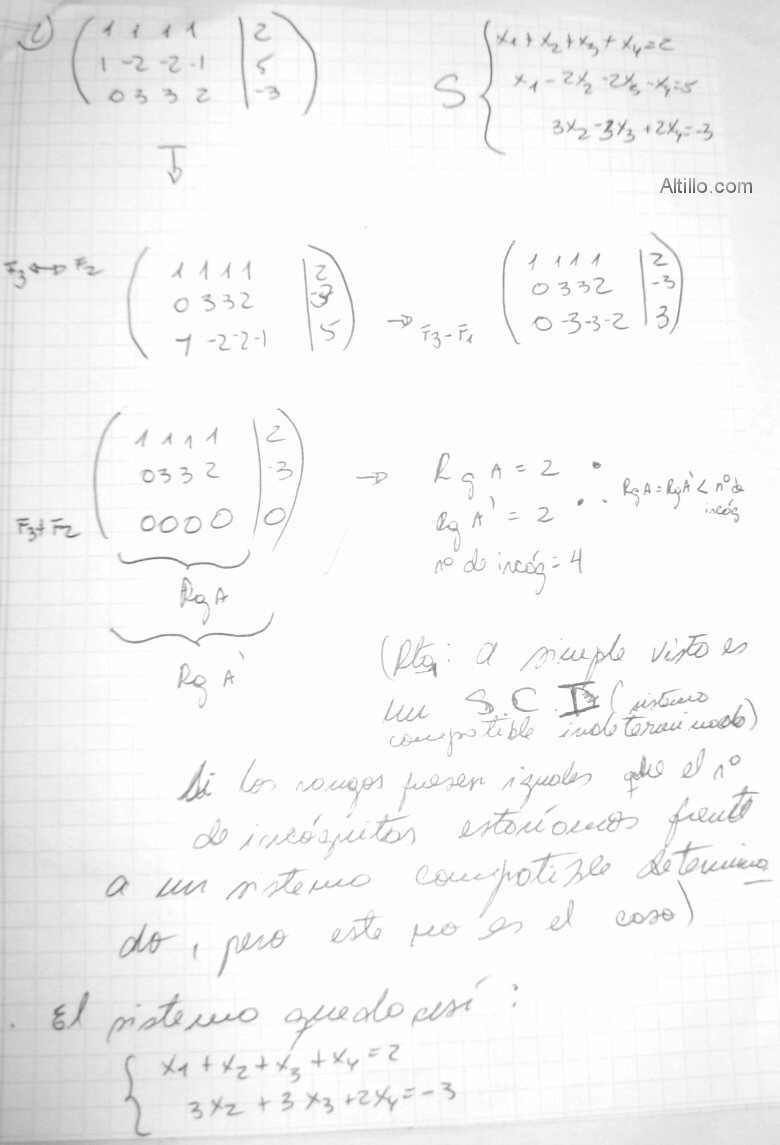 2)
1 1 1 1 | 2
1 -2 -2 -1 | 5
0 3 3 2 | -3
S { x1 + x2 + x3 + x4 = 2
x1 - 2x2 - 2x3 - x4 = 5
3x2 - 3x3 + 2x4 = -3
Altillo.com
F3 ↔ F2
1 1 1 1 | 2
0 3 3 2 | -3
1 -2 -2 -1 | 5
→ F3 - F1
1 1 1 1 | 2
0 3 3 2 | -3
0 -3 -3 -2 | 3
F3 + F2
1 1 1 1 | 2
0 3 3 2 | -3
0 0 0 0 | 0
Rg A
Rg A'
→ Rg A = 2
Rg A' = 2
nº de incóg = 4
Rg A = Rg A' < nº de
incóg
(Rta: a simple vista es
un S.C.I (sistema
compatible indeterminado)
Si los rangos fuesen iguales que el nº
de incógnitas estaríamos frente
a un sistema compatible determina
do, pero este no es el caso)
. El sistema queda así:
{ x1 + x2 + x3 + x4 = 2
3x2 + 3x3 + 2x4 = -3